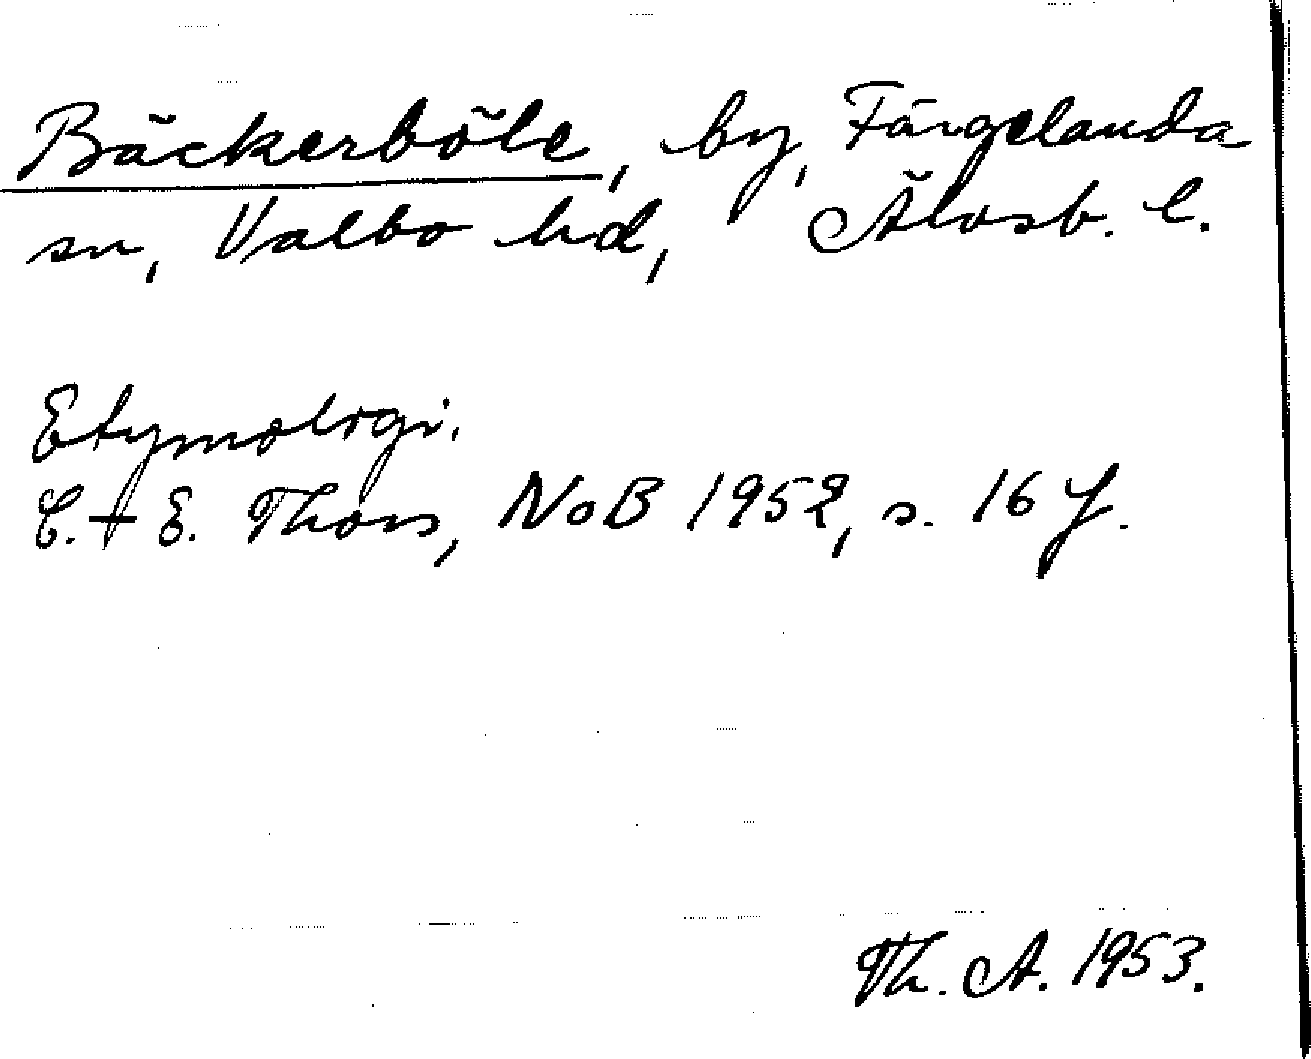 Bäckerböle, by, Färgelanda
sn, Valbo hd, Älvsb. l.
Etymologi.
C.-E. Thors, NoB 1952, s. 16 f.
Th. A. 1953.